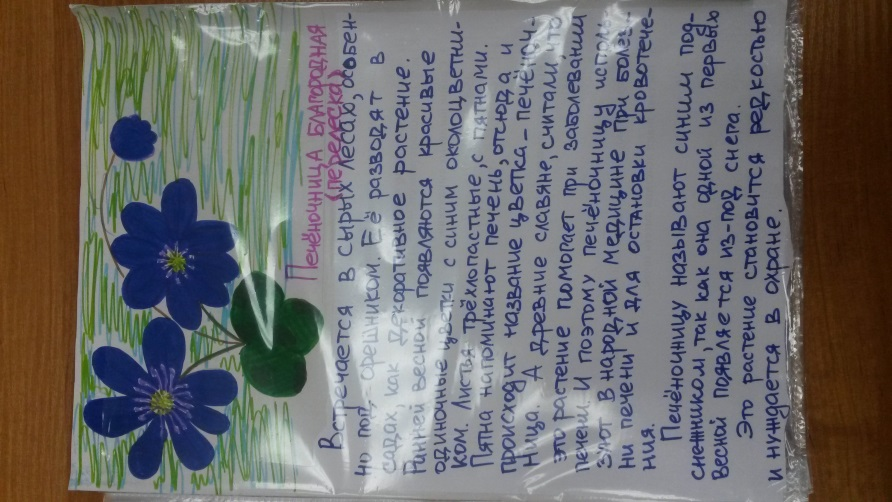 Печёночница благородная
(перелеска)
Встречается в сырых лесах, особен-
но под орешником. Её разводят в
садах, как декоративное растение.
Ранней весной появляются красивые
одиночные цветки с синим околоцветни-
ком. Листья трёхлопастные, с пятнами.
Пятна напоминают печень, отсюда и
происходит название цветка - печёноч-
ница. А древние славяне, считали, что
это растение помогает при заболевании
печени. И поэтому печёночницу исполь-
зуют в народной медицине при болез-
ни печени и для остановки кровотече-
ния.
Печёночницу называют синим под-
снежником, так как она одной из первых
весной появляется из-под снега.
Это растение становится редкостью
и нуждается в охране.